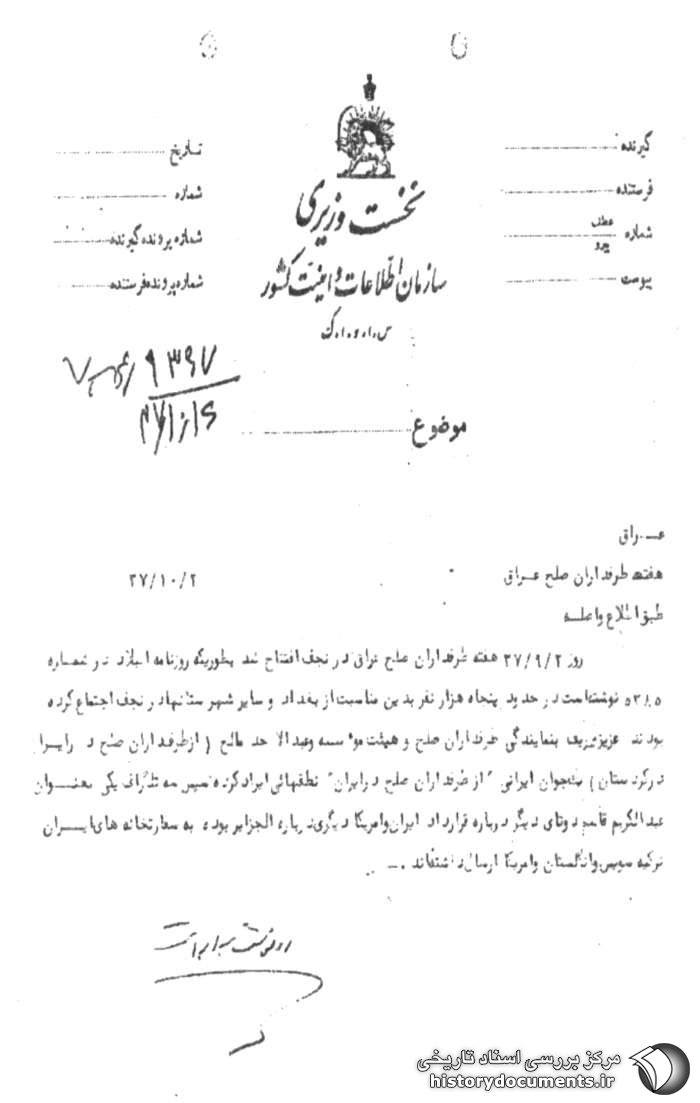 گیرنده
فرستنده
شماره عطف پیرو
پیوست
تاریخ
شماره
شماره پرونده گیرنده
شماره پرونده فرستنده
نخست وزیری
سازمان اطلاعات و امنیت کشور
س.ا.و.ا.ک
۹۳۹۷
موضوع
عــراق
هفته طرفداران صلح عراق
۳۷/۱۰/۲
طبق اطلاع واصله
روز ۳۷/۹/۲ هفته طرفداران صلح عراق در نجف افتتاح شد بطوریکه روزنامه البلاد در شماره
نوشته است در حدود پنجاه هزار نفر بدین مناسبت از بغداد و سایر شهرستانها در نجف اجتماع کرده
بودند عزیز شریف بنمایندگی طرفداران صلح و هیئت موسسه وعبدالاحد مالح ( از طرفداران صلح در
در کردستان ) یکجوان ایرانی " از طرفداران صلح در ایران " نطقهائی ایراد کرده سپس سه تلگراف یکی بعنــوان
عبدالکریم قاسم دوتای دیگر درباره قرارداد ایران وامریکا دیگری درباره الجزایر بوده به سفارتخانه های ایــران
ترکیه سویس وانگلستان وامریکا ارسال داشته‌اند .ــ
مرکز بررسی اسناد تاریخی
historydocuments.ir